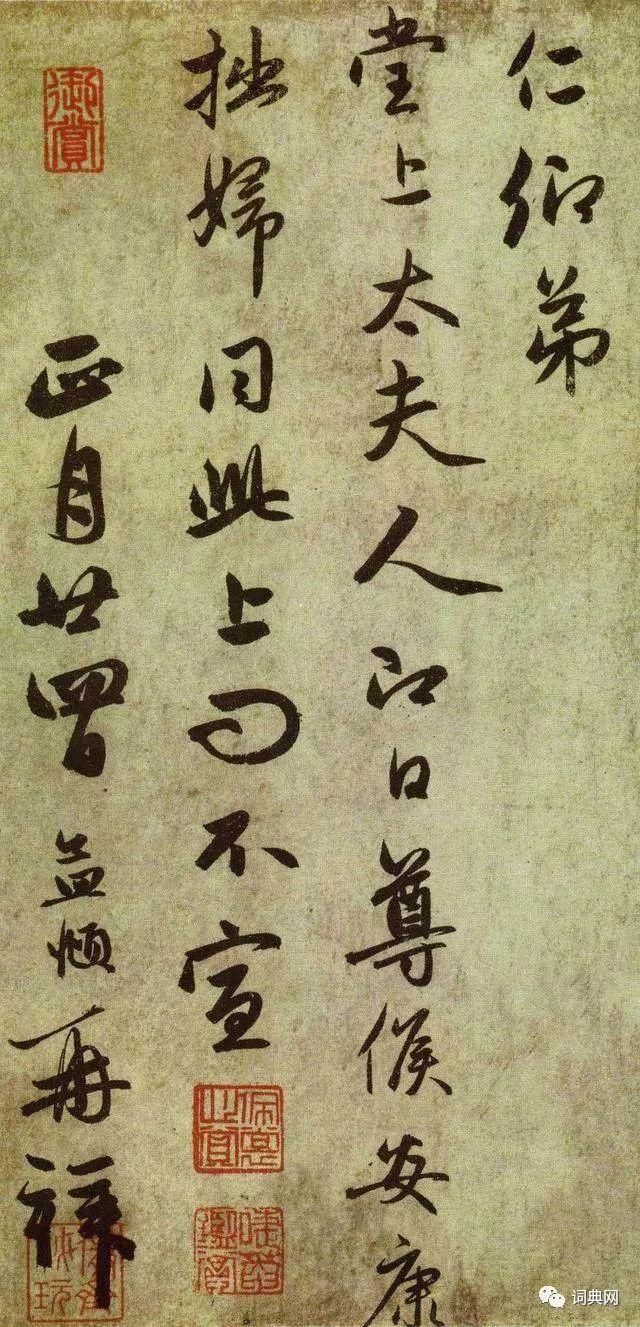 仁卿弟
堂上太夫人即日尊候安康
拙婦同此上問不宣
正月廿四日 孟頫再拜
御賞
词典网